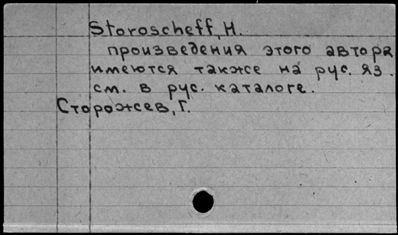 Storoscheff, H.
произведения этого автора
имеются также на рус. яз.
см. в рус. каталоге.
Сторожев, Г.